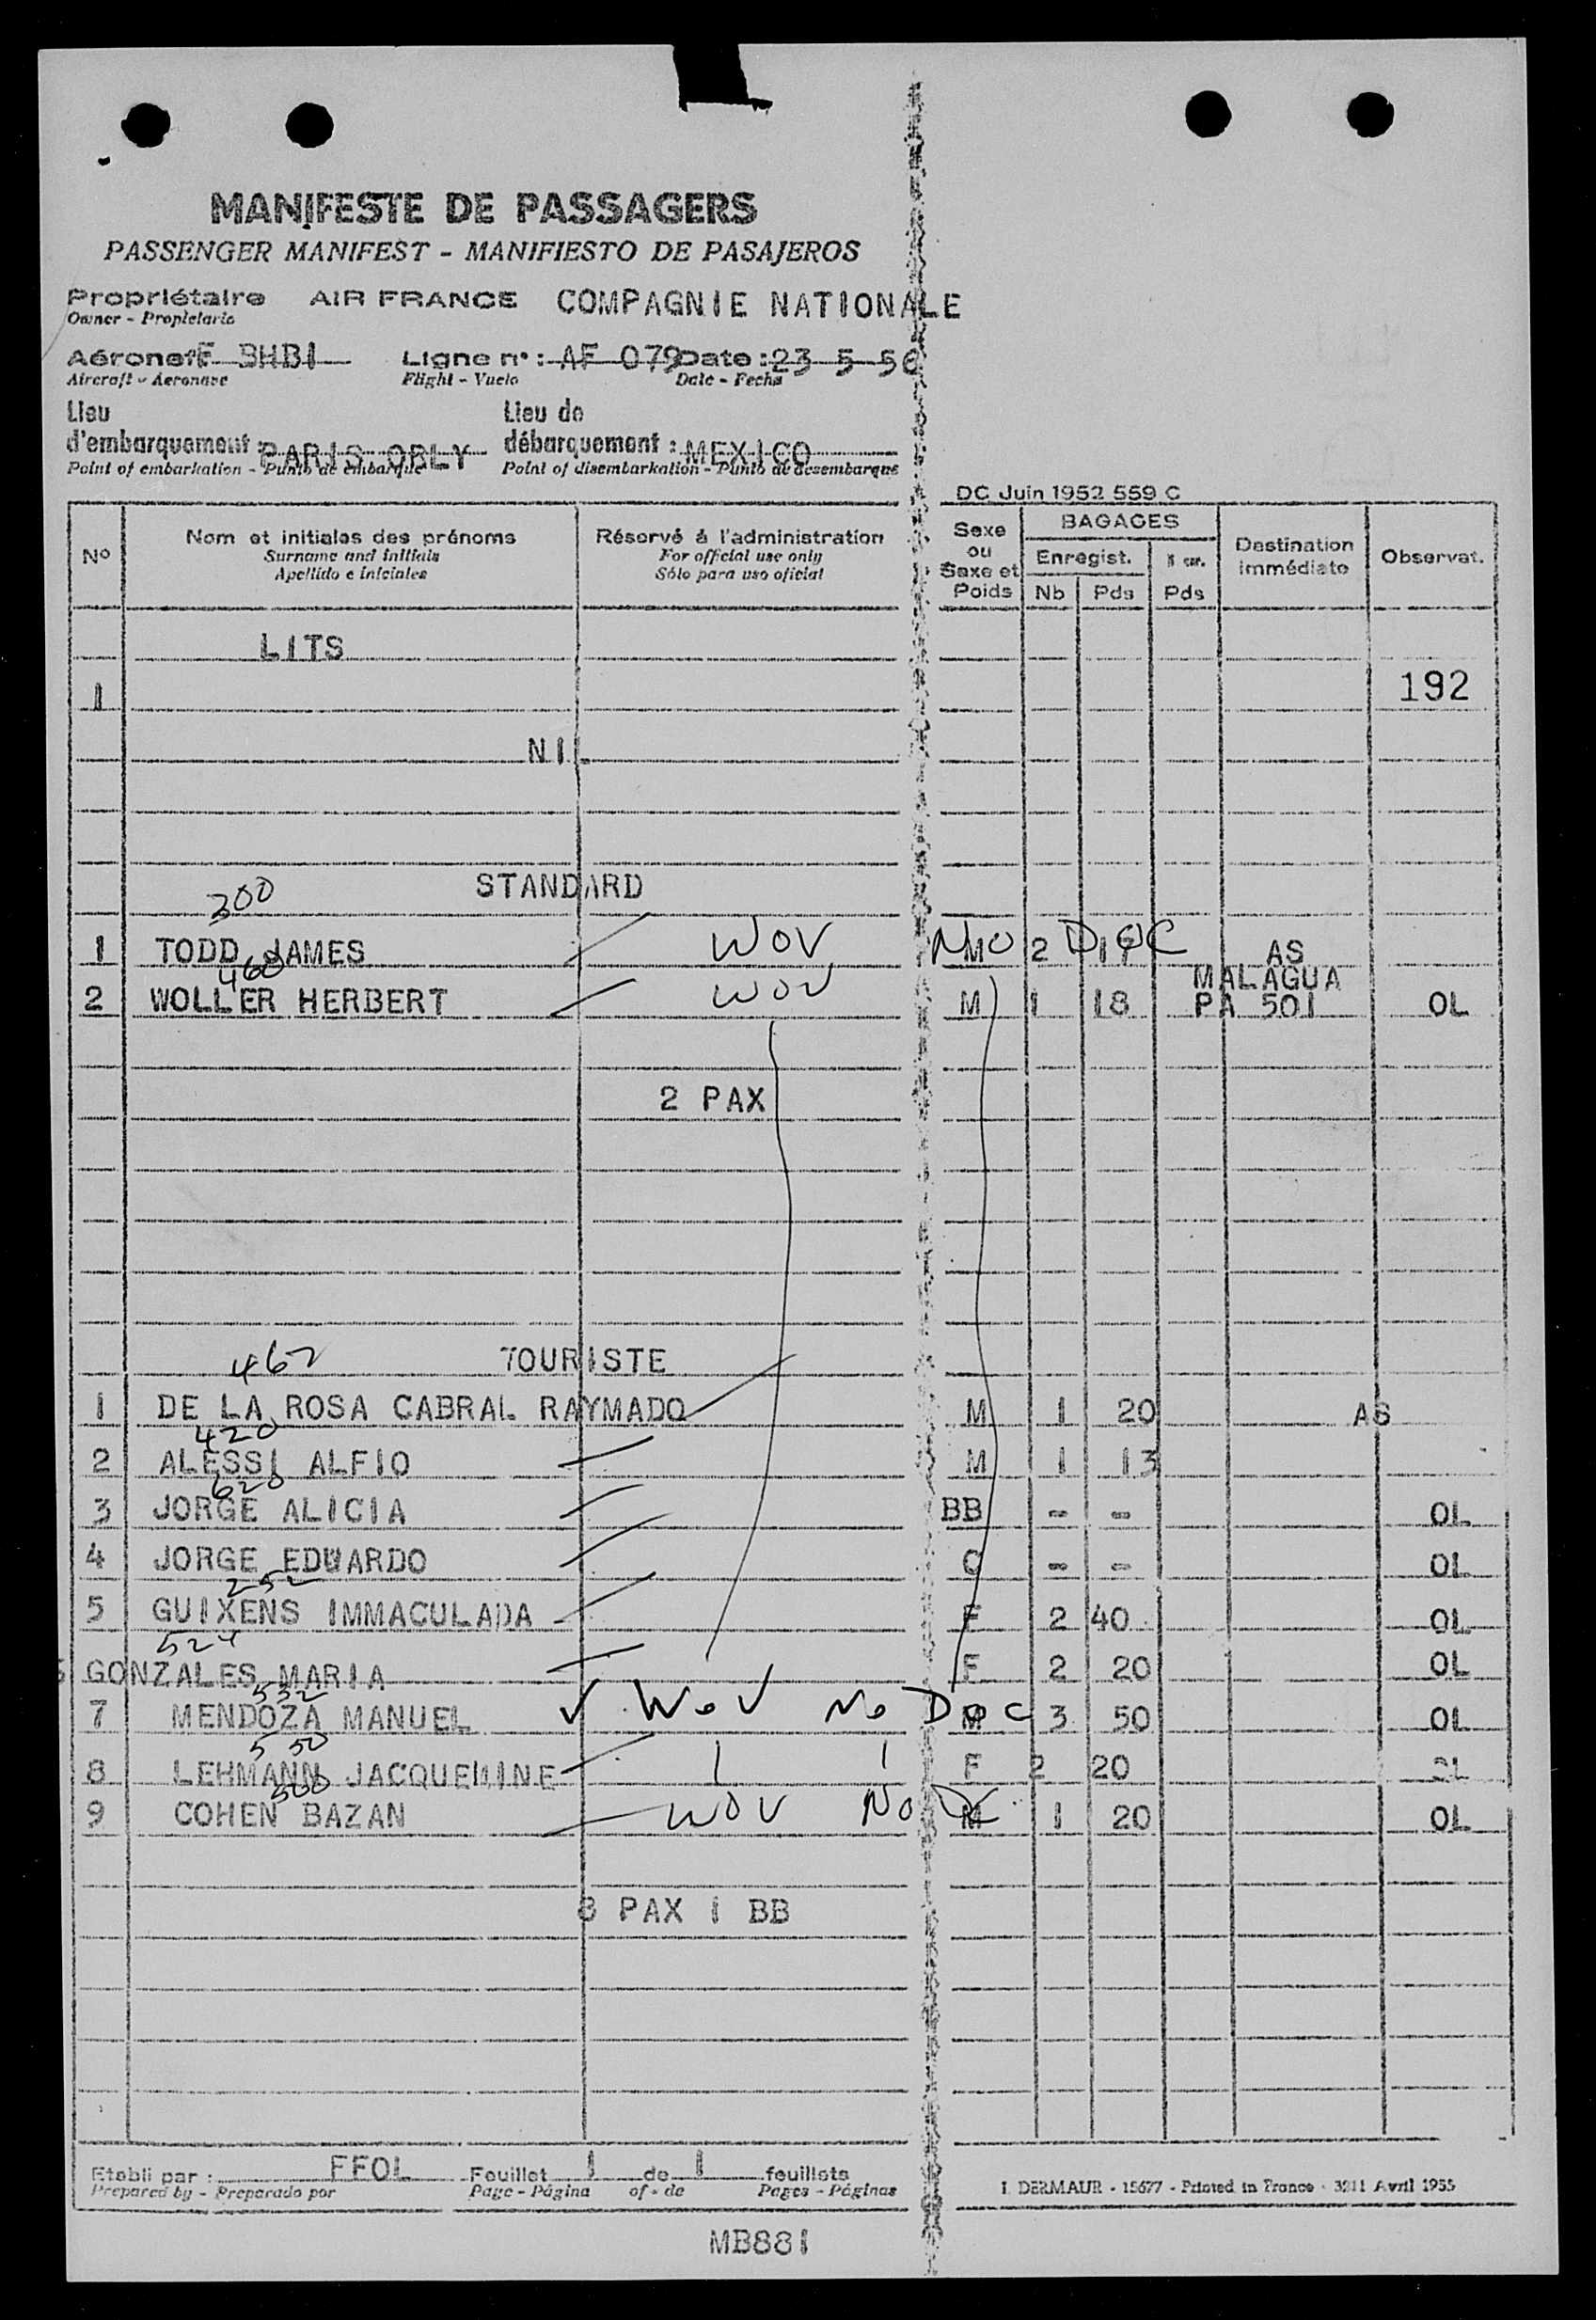 MANIFESTE DE PASSAGERS
PASSENGER MANIFEST - MANIFIESTO DE PASAJEROS
Propriétaire AIR FRANCE COMPAGNIE NATIONALE
Owner - Propietario
Aéronef F BHBI Ligne n° : AF 079 Date : 23 5 56
Aircraft - Aeronave Flight - Vuelo Date - Fecha
Lieu d'embarquement : PARIS ORLY Lieu de débarquement : MEXICO
Point of embarkation - Punto de embarque Point of disembarkation - Punto de desembarque
DC Juin 1952 559 C
N° Nom et initiales des prénoms Réservé à l'administration Sexe ou Sexe et Poids BAGAGES Destination immédiate Observat.
Surname and initials For official use only Enregist.
Apellido e iniciales Sólo para uso oficial Nb Pds Pds
LITS
1 192
NIL
STANDARD
300
1 TODD JAMES WOV No DOC M 2 AS
460 MALAGUA
2 WOLLER HERBERT WOV M 1 18 PA 501 OL
2 PAX
462 TOURISTE
1 DE LA ROSA CABRAL RAYMADO M 1 20 AS
420
2 ALESSI ALFIO M 1 13
620
3 JORGE ALICIA BB - - OL
4 JORGE EDUARDO C - - OL
252
5 GUIXENS IMMACULADA F 2 40 OL
524
GONZALES MARIA F 2 20 OL
532
7 MENDOZA MANUEL WOV No Doc M 3 50 OL
5 50
8 LEHMANN JACQUEMINE F 2 20 OL
500
9 COHEN BAZAN WOV No M 1 20 OL
8 PAX 1 BB
Etabli par : FFOL Feuillet 1 de 1 feuillets
Prepared by - Preparado por Page - Página of - de Pages - Páginas
I. DERMAUR - 15677 - Printed in France - 3211 Avril 1955
MB881